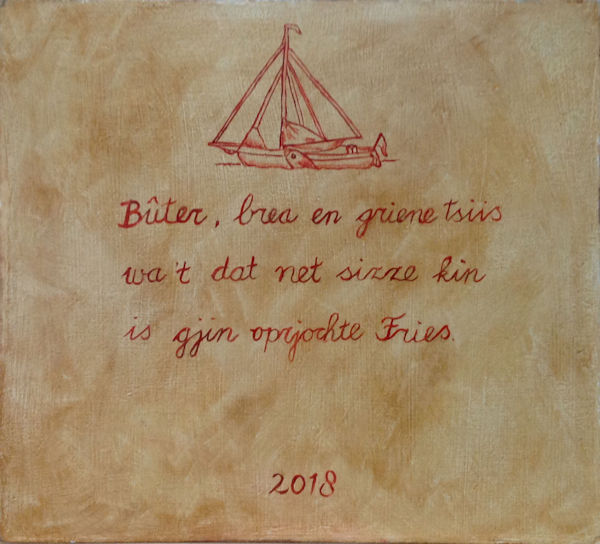 Bûter, brea en griene tsiis
wa 't dat net sizze kin
is gjin oprjochte Fries.
2018